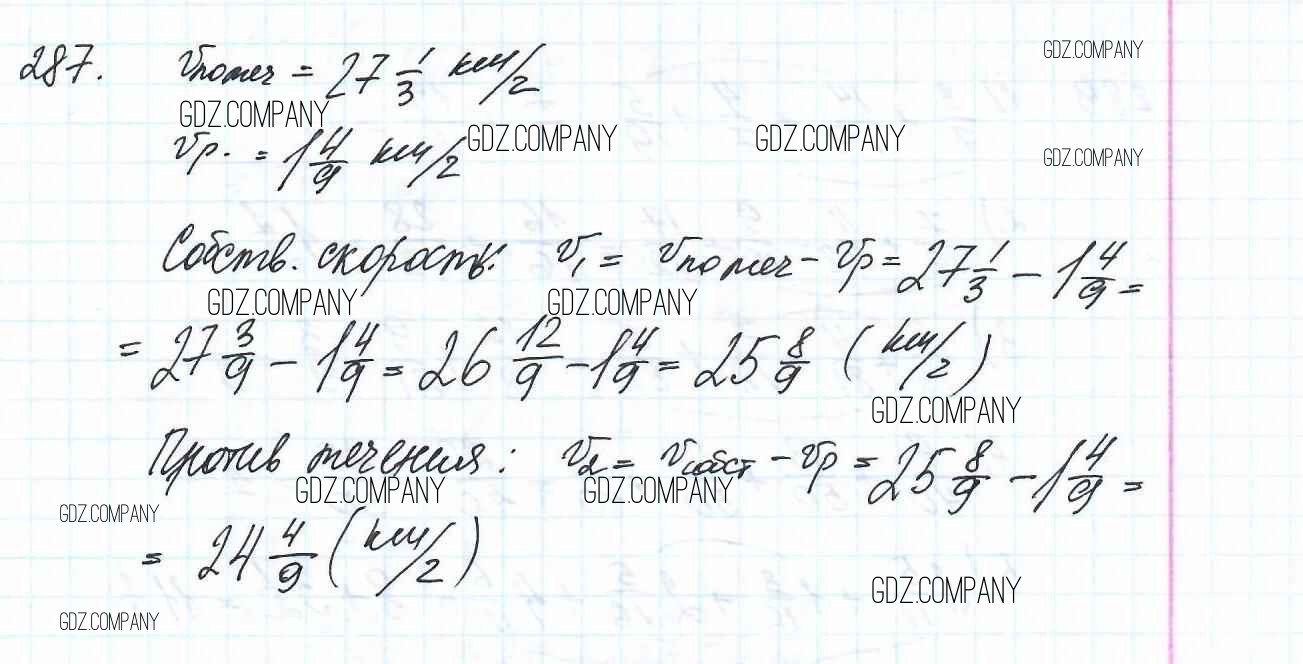 287. vпо теч = 27 1/3 км/ч
GDZ.COMPANY
GDZ.COMPANY
vр. = 1 4/9 км/ч
GDZ.COMPANY
GDZ.COMPANY
GDZ.COMPANY
Собств. скорость: v1 = vпо теч - vр = 27 1/3 - 1 4/9 =
GDZ.COMPANY
GDZ.COMPANY
= 27 3/9 - 1 4/9 = 26 12/9 - 1 4/9 = 25 8/9 (км/ч)
GDZ.COMPANY
Против течения: v2 = vсобст - vр = 25 8/9 - 1 4/9 =
GDZ.COMPANY
GDZ.COMPANY
GDZ.COMPANY
= 24 4/9 (км/ч)
GDZ.COMPANY
GDZ.COMPANY